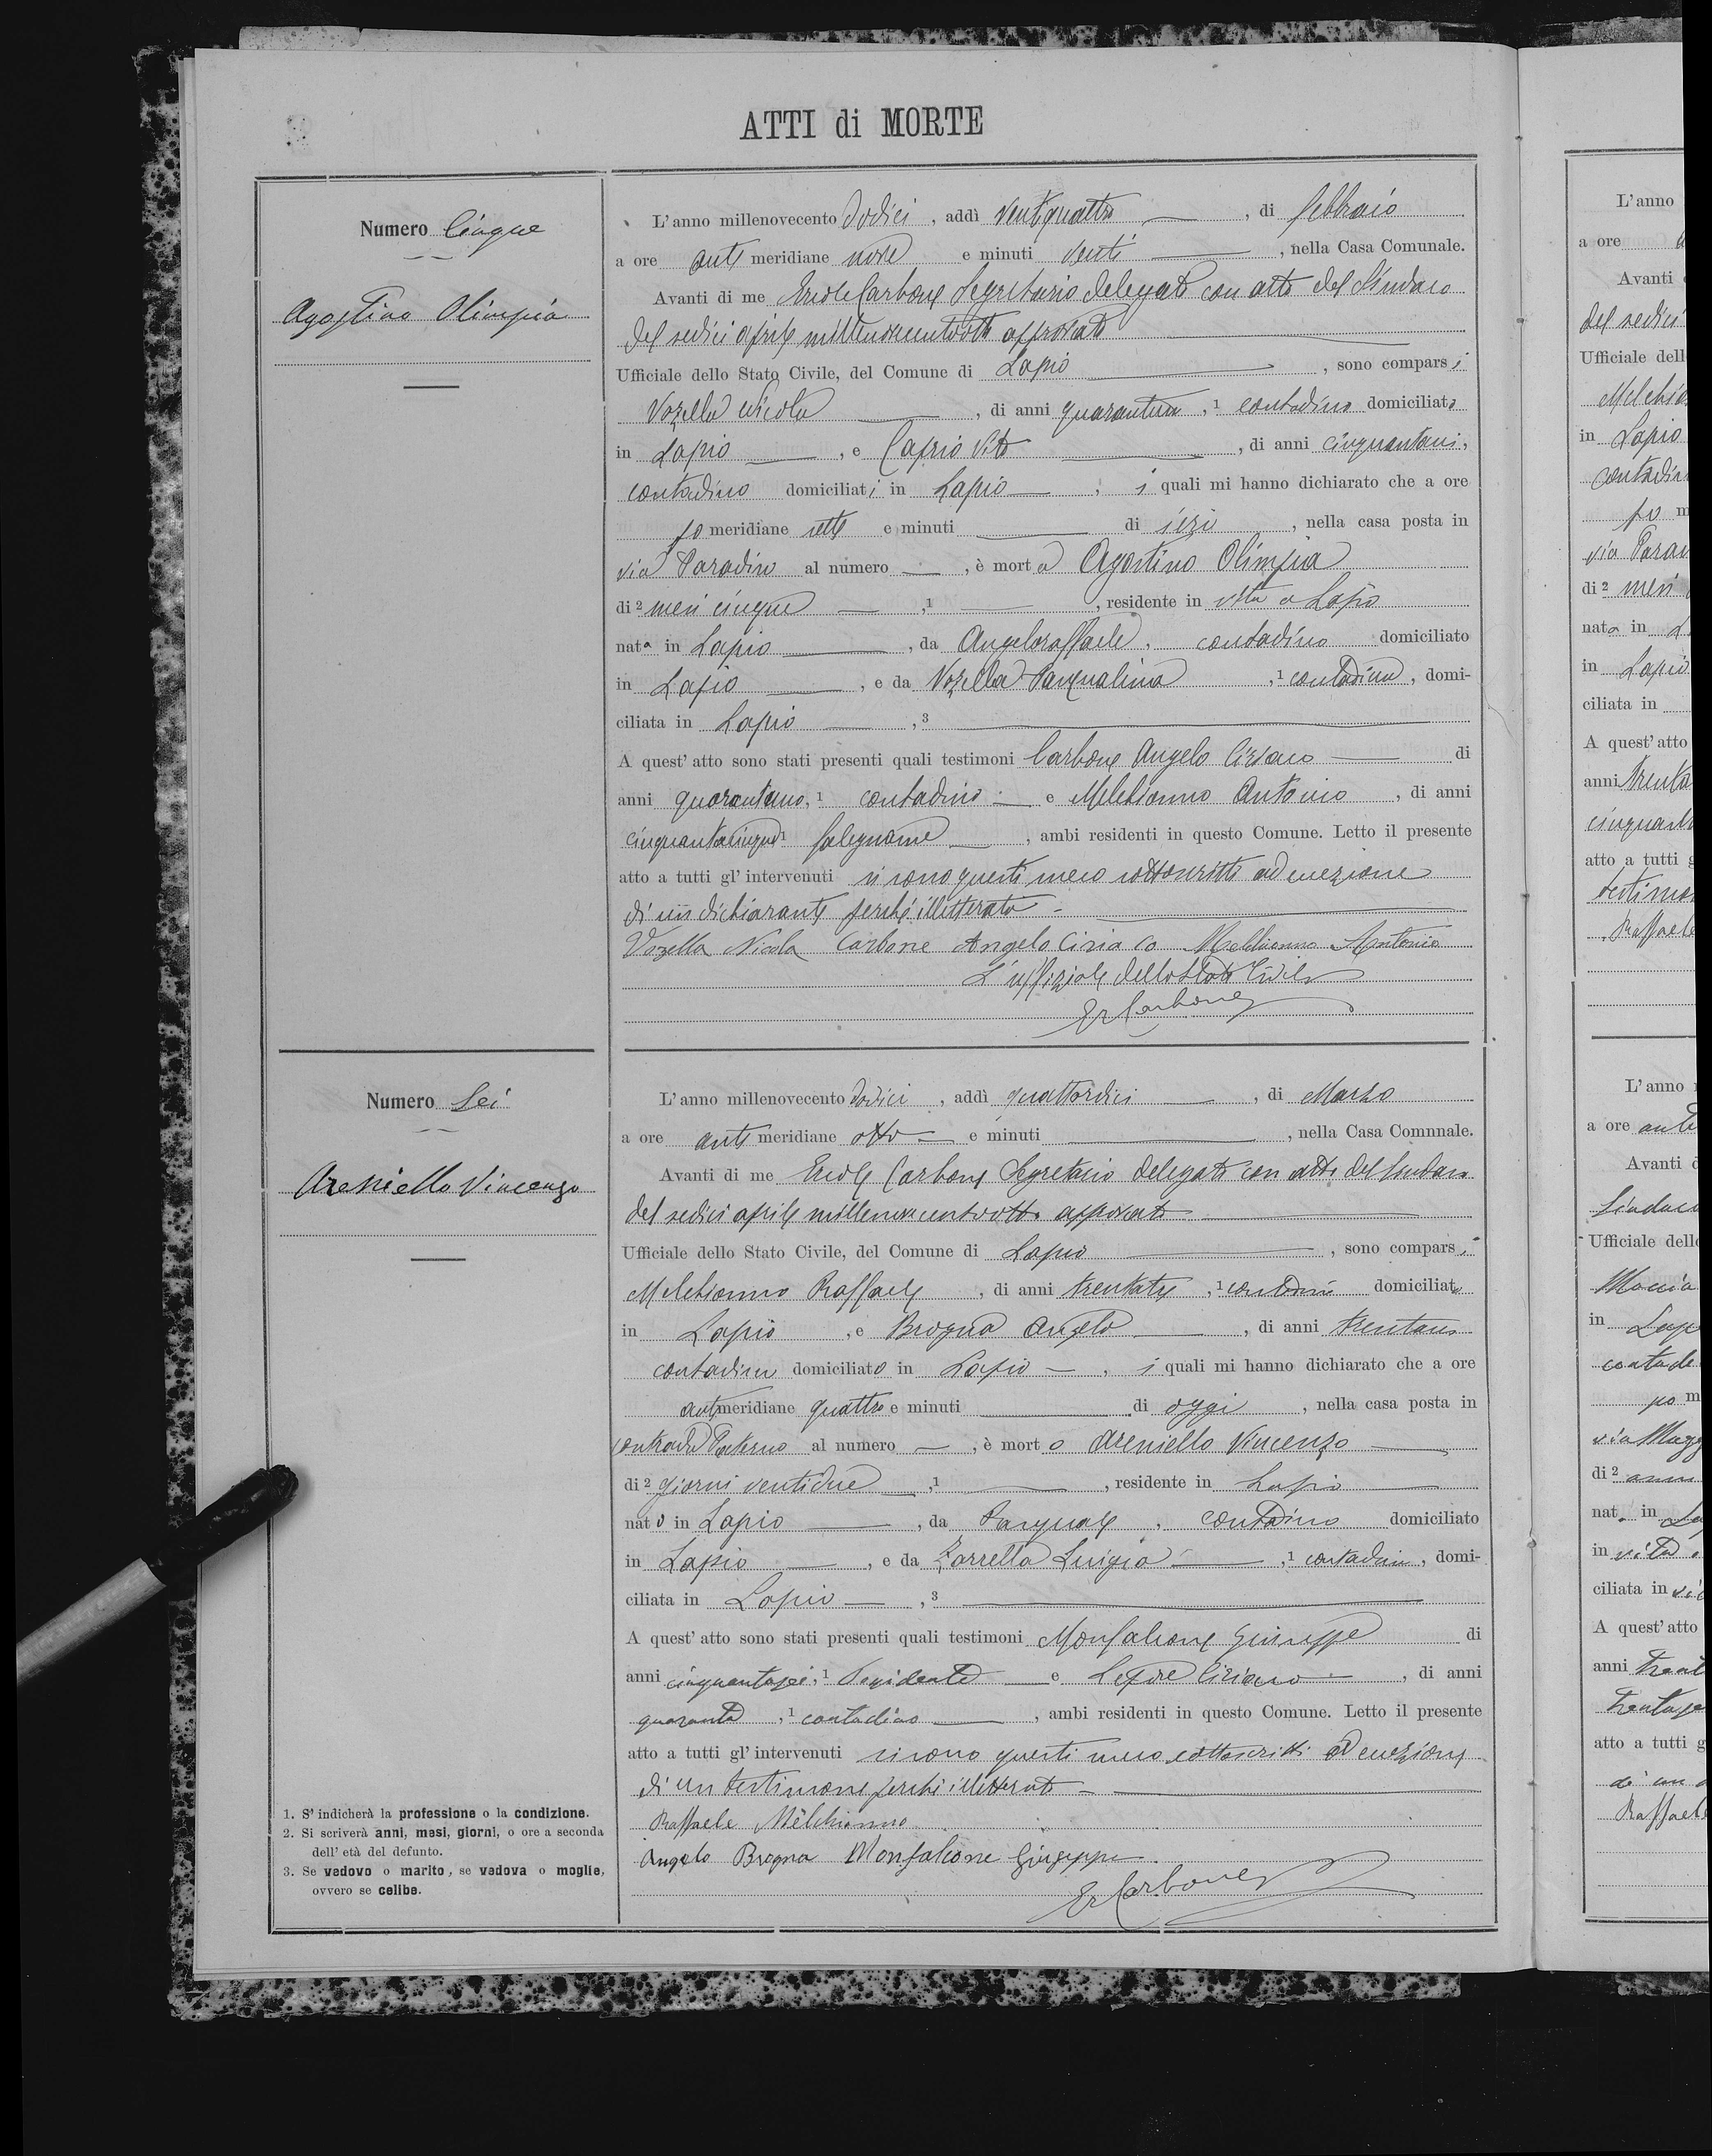 ATTI di MORTE
Numero Cinque
Agostino Olimpia
L'anno millenovecento dodici, addì ventiquattro, di febbraio
a ore anti meridiane nove e minuti venti, nella Casa Comunale.
Avanti di me Ercole Carbone Segretario delegato con atto del Sindaco
del sedici aprile millenovecentootto approvato
Ufficiale dello Stato Civile, del Comune di Lapio, sono comparsi
Vozella Nicola, di anni quarantuno, 1 contadino domiciliato
in Lapio, e Caprio Vito, di anni
contadino domiciliati in Lapio, i quali mi hanno dichiarato che a ore
po meridiane sette e minuti di ieri, nella casa posta in
via Paradiso al numero, è morta Agostino Olimpia
di 2 mesi cinque, 1, residente in vita a Lapio
nata in Lapio, da Angeloraffaele, contadino domiciliato
in Lapio, e da Vozella Pasqualina, 1 contadina, domi-
ciliata in Lapio, 3
A quest' atto sono stati presenti quali testimoni Carbone Angelo Ciriaco di
anni quarantuno, 1 contadino e Melchionno Antonio, di anni
cinquantacinque 1 falegname, ambi residenti in questo Comune. Letto il presente
atto a tutti gl' intervenuti si sono questi meco sottoscritti ad eccezione
di un dichiarante perché illetterato
Vozella Nicola Carbone Angelo Ciriaco Melchionno Antonio
L'uffiziale dello Stato Civile
Er Carbone
Numero Sei
Areniello Vincenzo
L'anno millenovecento dodici, addì quattordici, di Marzo
a ore anti meridiane otto e minuti, nella Casa Comnnale.
Avanti di me Ercole Carbone Segretario delegato con atto del Sindaco
del sedici aprile millenovecentootto approvato
Ufficiale dello Stato Civile, del Comune di Lapio, sono comparsi
Melchionno Raffaele, di anni trentatre, 1 contadino domiciliato
in Lapio, e Brogna Angelo, di anni trentuno
contadino domiciliato in Lapio, i quali mi hanno dichiarato che a ore
anti meridiane quattro e minuti di oggi, nella casa posta in
contrada Paterno al numero, è morto Areniello Vincenzo
di 2 giorni ventidue, 1, residente in Lapio
nato in Lapio, da Pasquale, contadino domiciliato
in Lapio, e da Zarrella Luigia, 1 contadina, domi-
ciliata in Lapio, 3
A quest' atto sono stati presenti quali testimoni Monfalcone Giuseppe di
anni cinquantasei, 1 Possidente e Lepore Ciriaco, di anni
quaranta, 1 contadino, ambi residenti in questo Comune. Letto il presente
atto a tutti gl' intervenuti si sono questi meco sottoscritti ad eccezione
di un testimone perché illetterato
Raffaele Melchionno
Angelo Brogna Monfalcone Giuseppe
Er Carbone
1. S' indicherà la professione o la condizione.
2. Si scriverà anni, mesi, giorni, o ore a seconda
dell' età del defunto.
3. Se vedovo o marito, se vedova o moglie,
ovvero se celibe.
L'anno
a ore
Avanti
del sedici
Ufficiale dell
in Lapio
contadin
po m
via Parad
di 2 mesi
nata in
in Lapio
ciliata in
A quest' atto
anni trenta
atto a tutti g
testimon
Raffaele
L'anno
a ore anti
Avanti d
Sindaco
Ufficiale dello
in Lap
contadi
po m
di 2 anni
nat in La
in vita
ciliata in
A quest' atto
anni trent
atto a tutti g
Raffaele